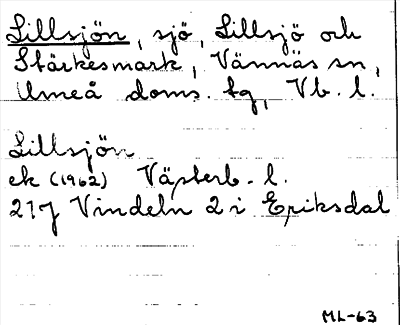 Lillsjön, sjö, Lillsjö och
Stärkesmark, Vännäs sn,
Umeå doms. tg, Vb. l.
Lillsjön
ek (1962) Västerb. l.
21J Vindeln 2 i Eriksdal
ML-63